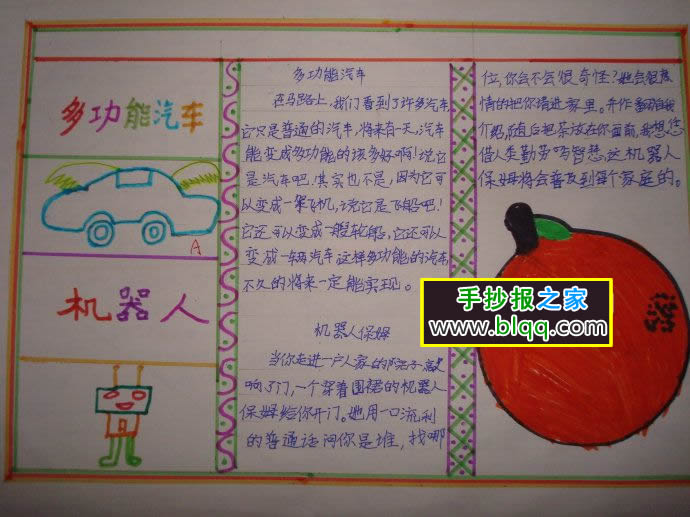 多功能汽车
A
机器人
多功能汽车
在马路上,我们看到了许多汽车
它只是普通的汽车,将来有一天,汽车
能变成多功能的该多好啊!说它
是汽车吧,其实也不是,因为它可
以变成一架飞机,说它是飞船吧!
它还可以变成一艘轮船,它还可以
变成一辆汽车这样多功能的汽车
不久的将来一定能实现。
机器人保姆
当你走进一户人家的院子,敲
响了门,一个穿着围裙的机器人
保姆给你开门。她用一口流利
的普通话问你是谁,找哪
位,你会不会很奇怪?她会很热
情的把你请进家里。并作
介绍,随后把茶放在你面前,我想您
借人类勤劳与智慧,这机器人
保姆将会普及到每个家庭的。
手抄报之家
www.blqq.com